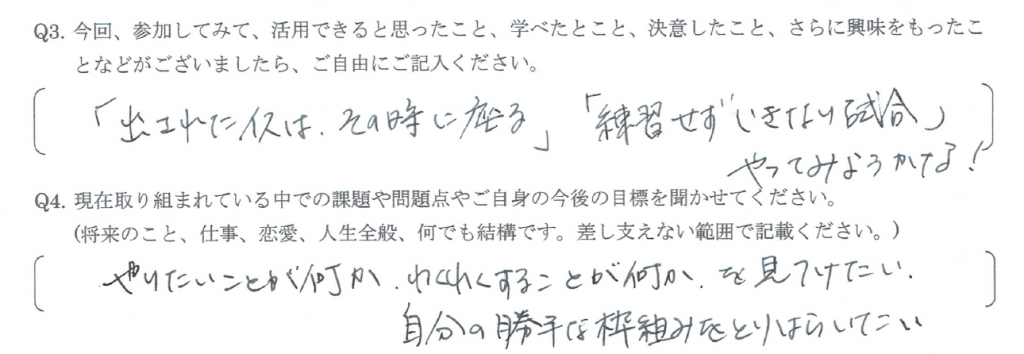 Q3. 今回、参加してみて、活用できると思ったこと、学べたとこと、決意したこと、さらに興味をもったこ
となどがございましたら、ご自由にご記入ください。
「出された イスは、その時に座る」 「練習せず いきなり試合」
やってみようかな!
Q4. 現在取り組まれている中での課題や問題点やご自身の今後の目標を聞かせてください。
(将来のこと、仕事、恋愛、人生全般、何でも結構です。差し支えない範囲で記載ください。)
やりたいことが何か、わくわくすることが何か、を見つけたい。
自分の勝手な枠組みをとりはらいたい